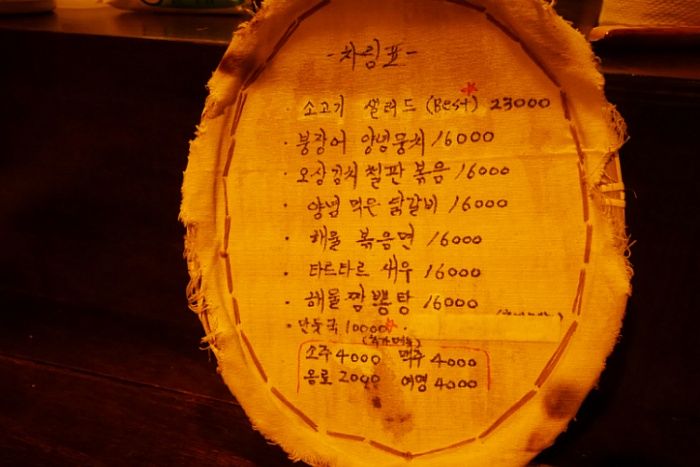 -차림표-
· 소고기 샐러드 (Best) 23000
· 붕장어 양념뭉치 16000
· 오삼김치 철판 볶음 16000
· 양념 먹은 닭갈비 16000
· 해물 볶음면 16000
· 타르타르 새우 16000
· 해물짬뽕탕 16000
· 만둣국 10000
소주 4000 맥주 4000
음료 2000 여명 4000